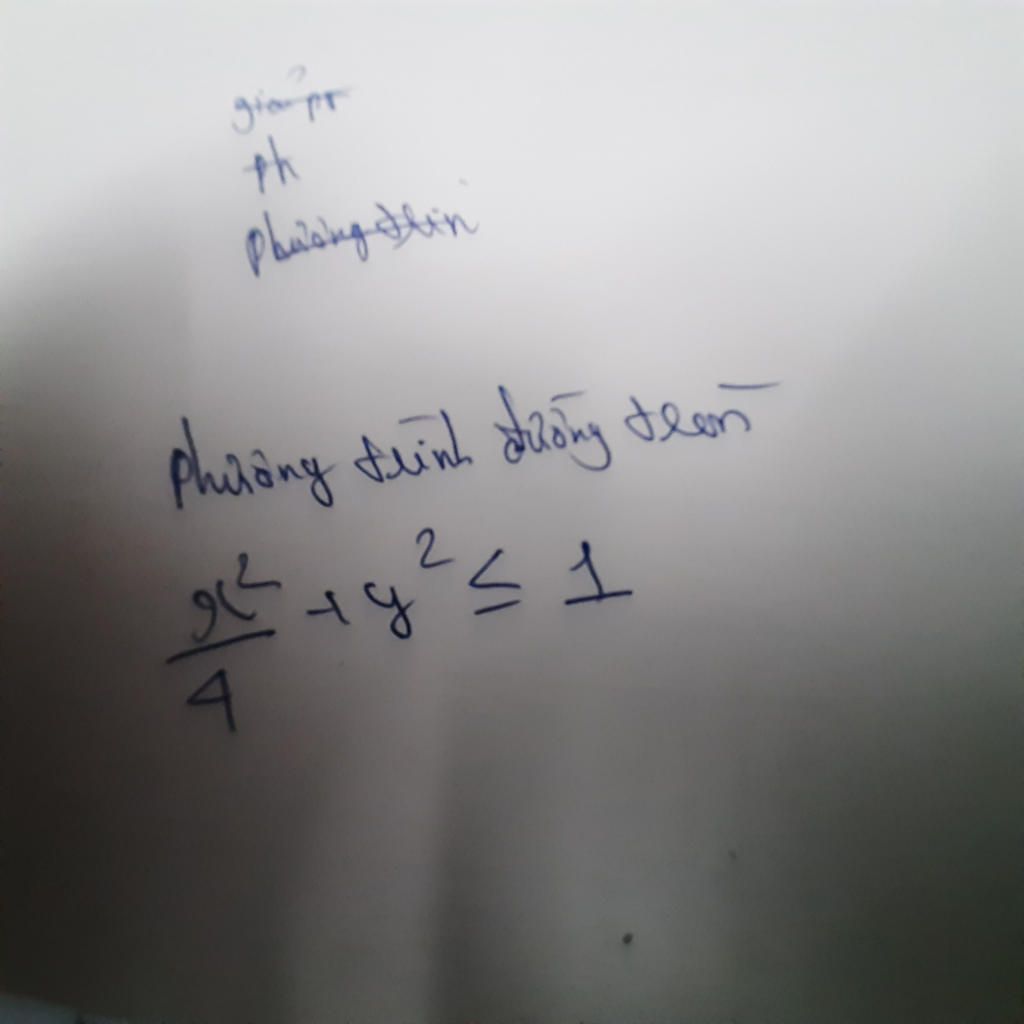 giải pt
ph
phương trìn
phương trình đường tròn
x²/4 + y² ≤ 1